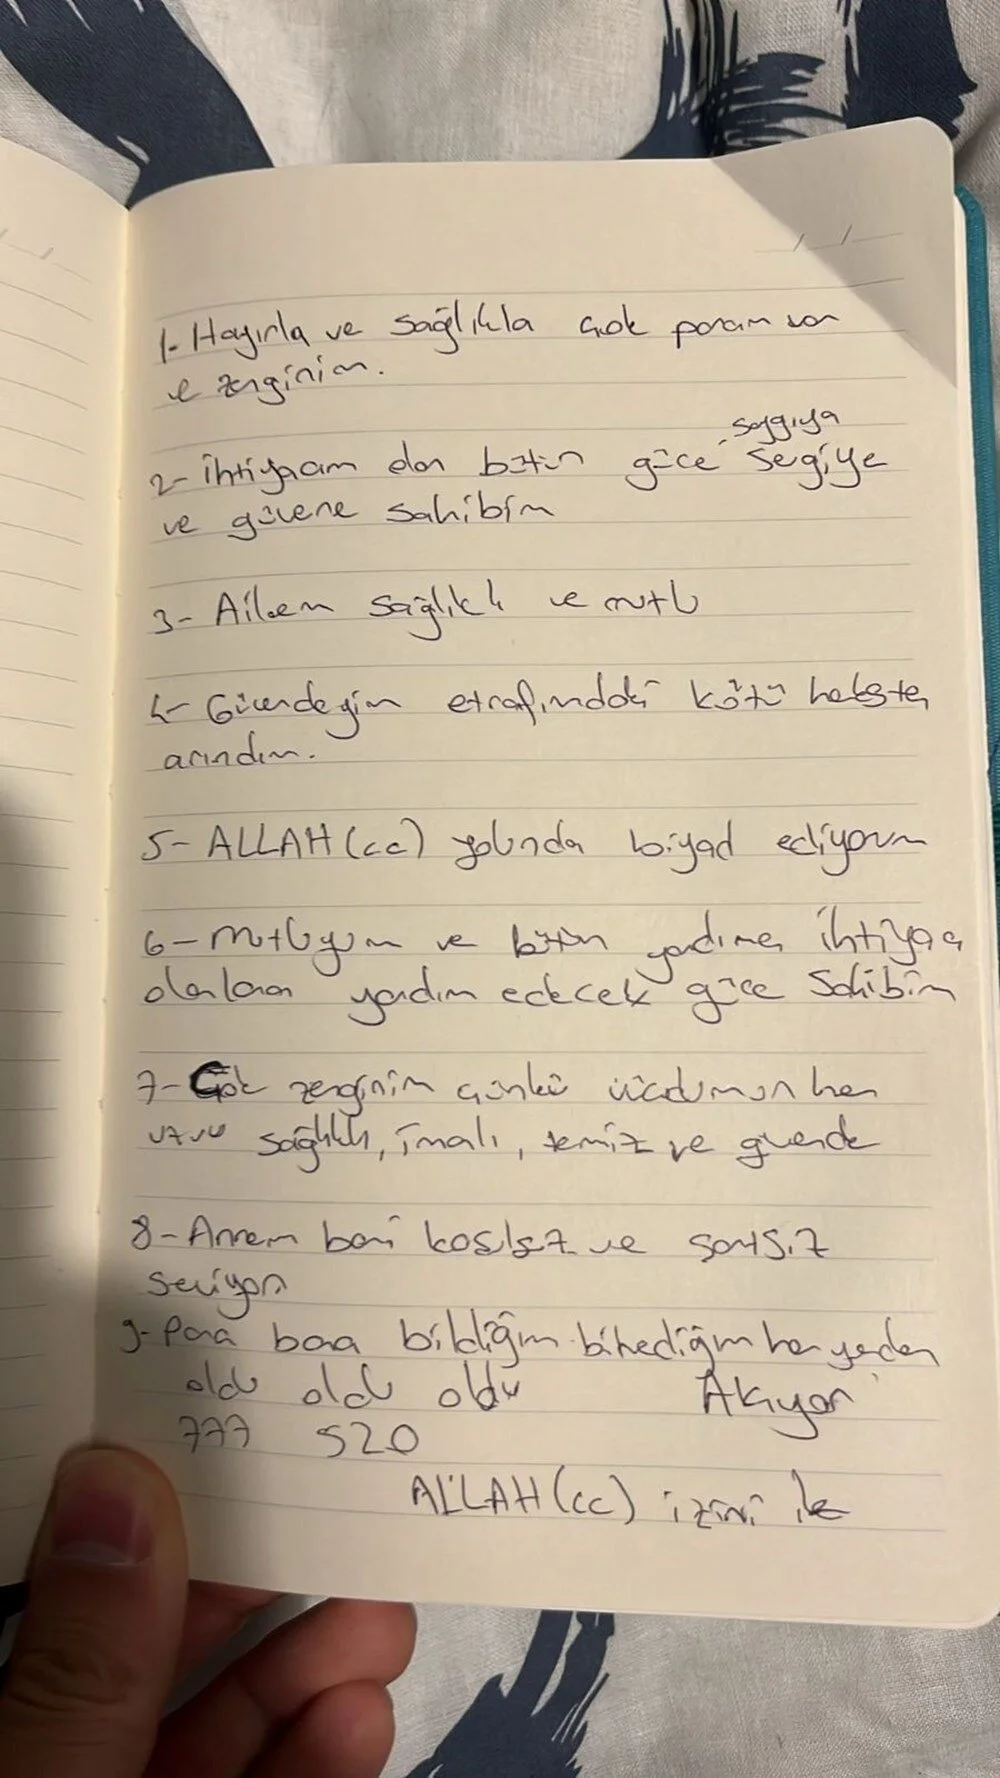 1- Hayırla ve sağlıkla çok param var
ve zenginim.
saygıya
2- ihtiyacım olan bütün güce, sevgiye
ve güvene sahibim
3- Ailem sağlıklı ve mutlu
4- Güvendeyim etrafımdaki kötü herkesten
arındım.
5- ALLAH (cc) yolunda ediyorum
6- mutluyum ve bütün yardıma ihtiyacı
olanlara yardım edecek güce Sahibim
7- Çok zenginim çünkü vücudumun her
uzvu sağlıklı, temiz ve güvende
8- Annem beni koşulsuz ve şartsız
seviyor
9- Para bana bildiğim bilmediğim her yerden
oldu oldu oldu Akıyor
777 520
ALLAH (cc) izini ile